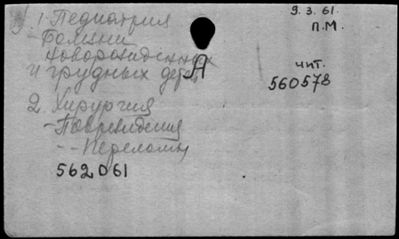 1. Педиатрия
- Болезни
новорожденных
и грудных дет.
А
2. Хирургия
- Повреждения
- - Переломы
562061
9.3.61.
П.М.
чит.
560578